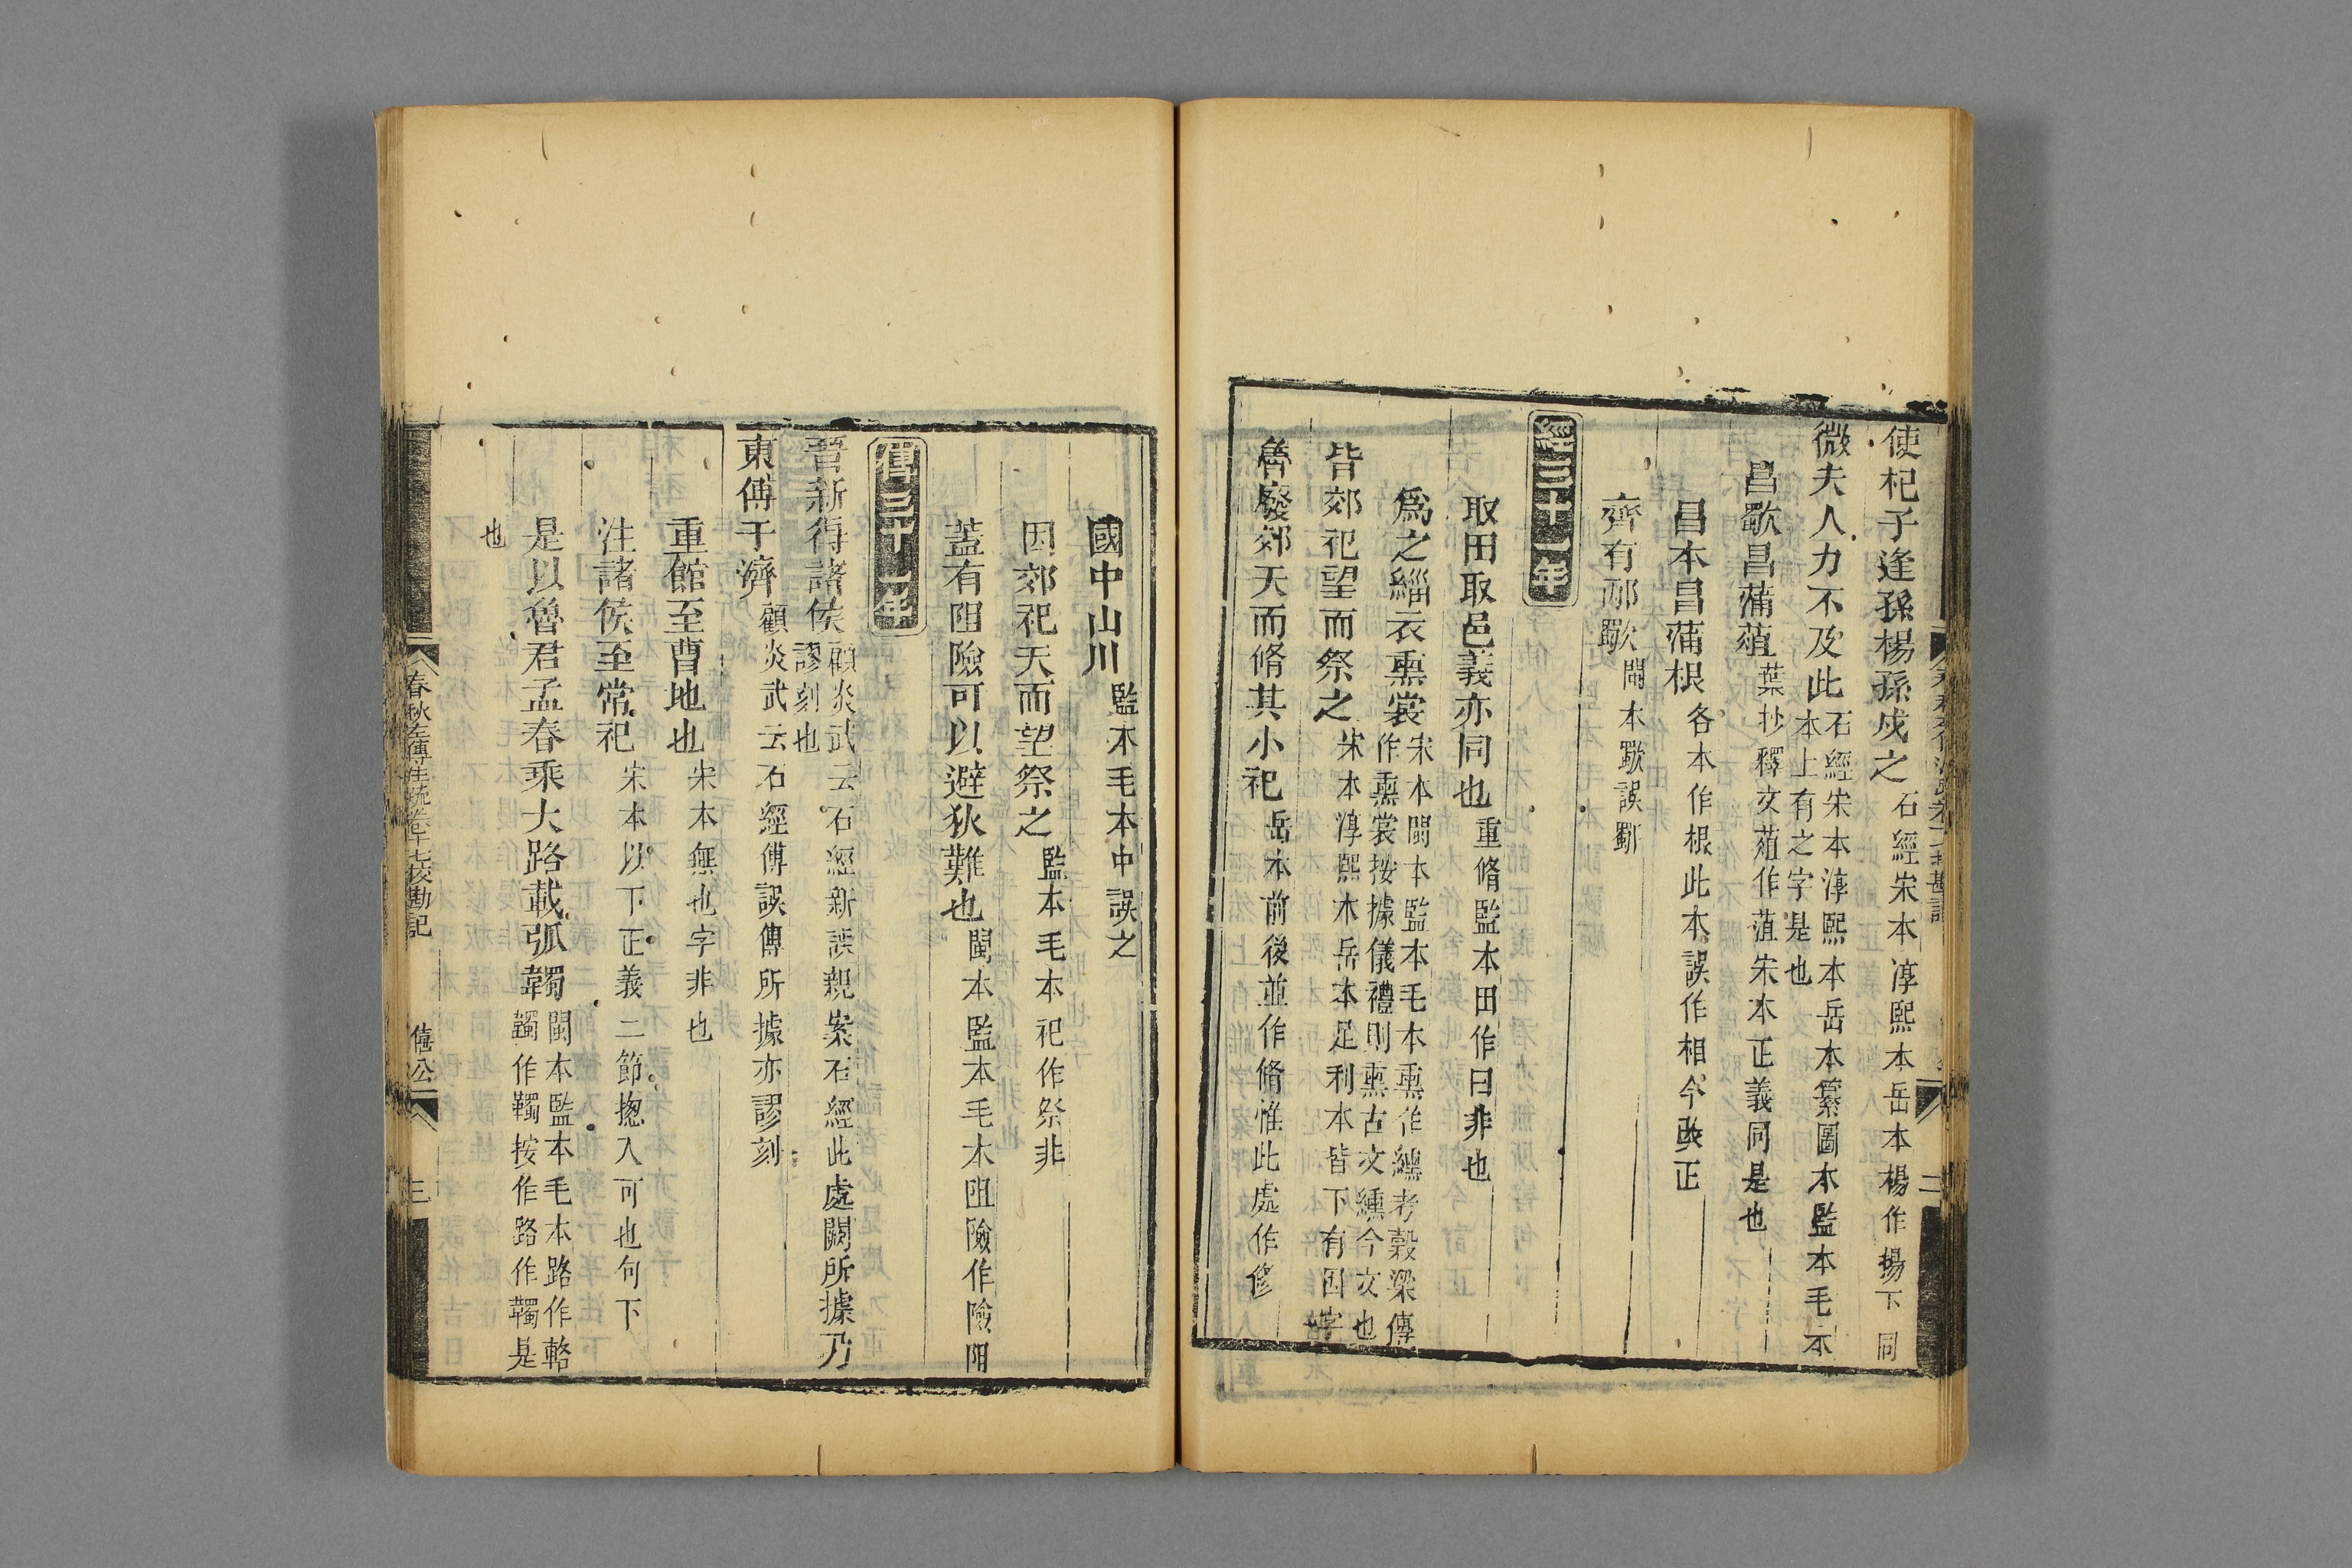 使杞子逢孫楊孫戍之 石經宋本淳熙本岳本楊作揚下同
微夫人力不及此 石經宋本淳熙本岳本纂圖本監本毛本
本上有之字是也
昌歜昌蒲葅 葉抄釋文葅作菹宋本正義同是也
昌本昌蒲根 各本作根此本誤作相今改正
齊有邴歜 閩本歜誤劉
經三十一年
取田取邑義亦同也 重脩監本田作曰非也
爲之緇衣熏裳 宋本閩本監本毛本熏作纁考穀梁傳
作熏裳按據儀禮則熏古文纁今文也
皆郊祀望而祭之 宋本淳熙本岳本足利本皆下有因字
魯廢郊天而脩其小祀 岳本前後並作脩惟此處作修
國中山川 監本毛本中誤之
因郊祀天而望祭之 監本毛本祀作祭非
蓋有阻險可以避狄難也 閩本監本毛本阻險作險阻
傳三十一年
晉新得諸侯 顧炎武云石經新誤親案石經此處闕所據乃
謬刻也
東傅于濟 顧炎武云石經傅誤傳所據亦謬刻
重館至曹地也 宋本無也字非也
注諸侯至常祀 宋本以下正義二節揔入可也句下
是以魯君孟春乘大路載弧韣 閩本監本毛本路作輅
韣作韣按作路作韣是
也
春秋左傳注疏卷十七校勘記
僖公
三
二